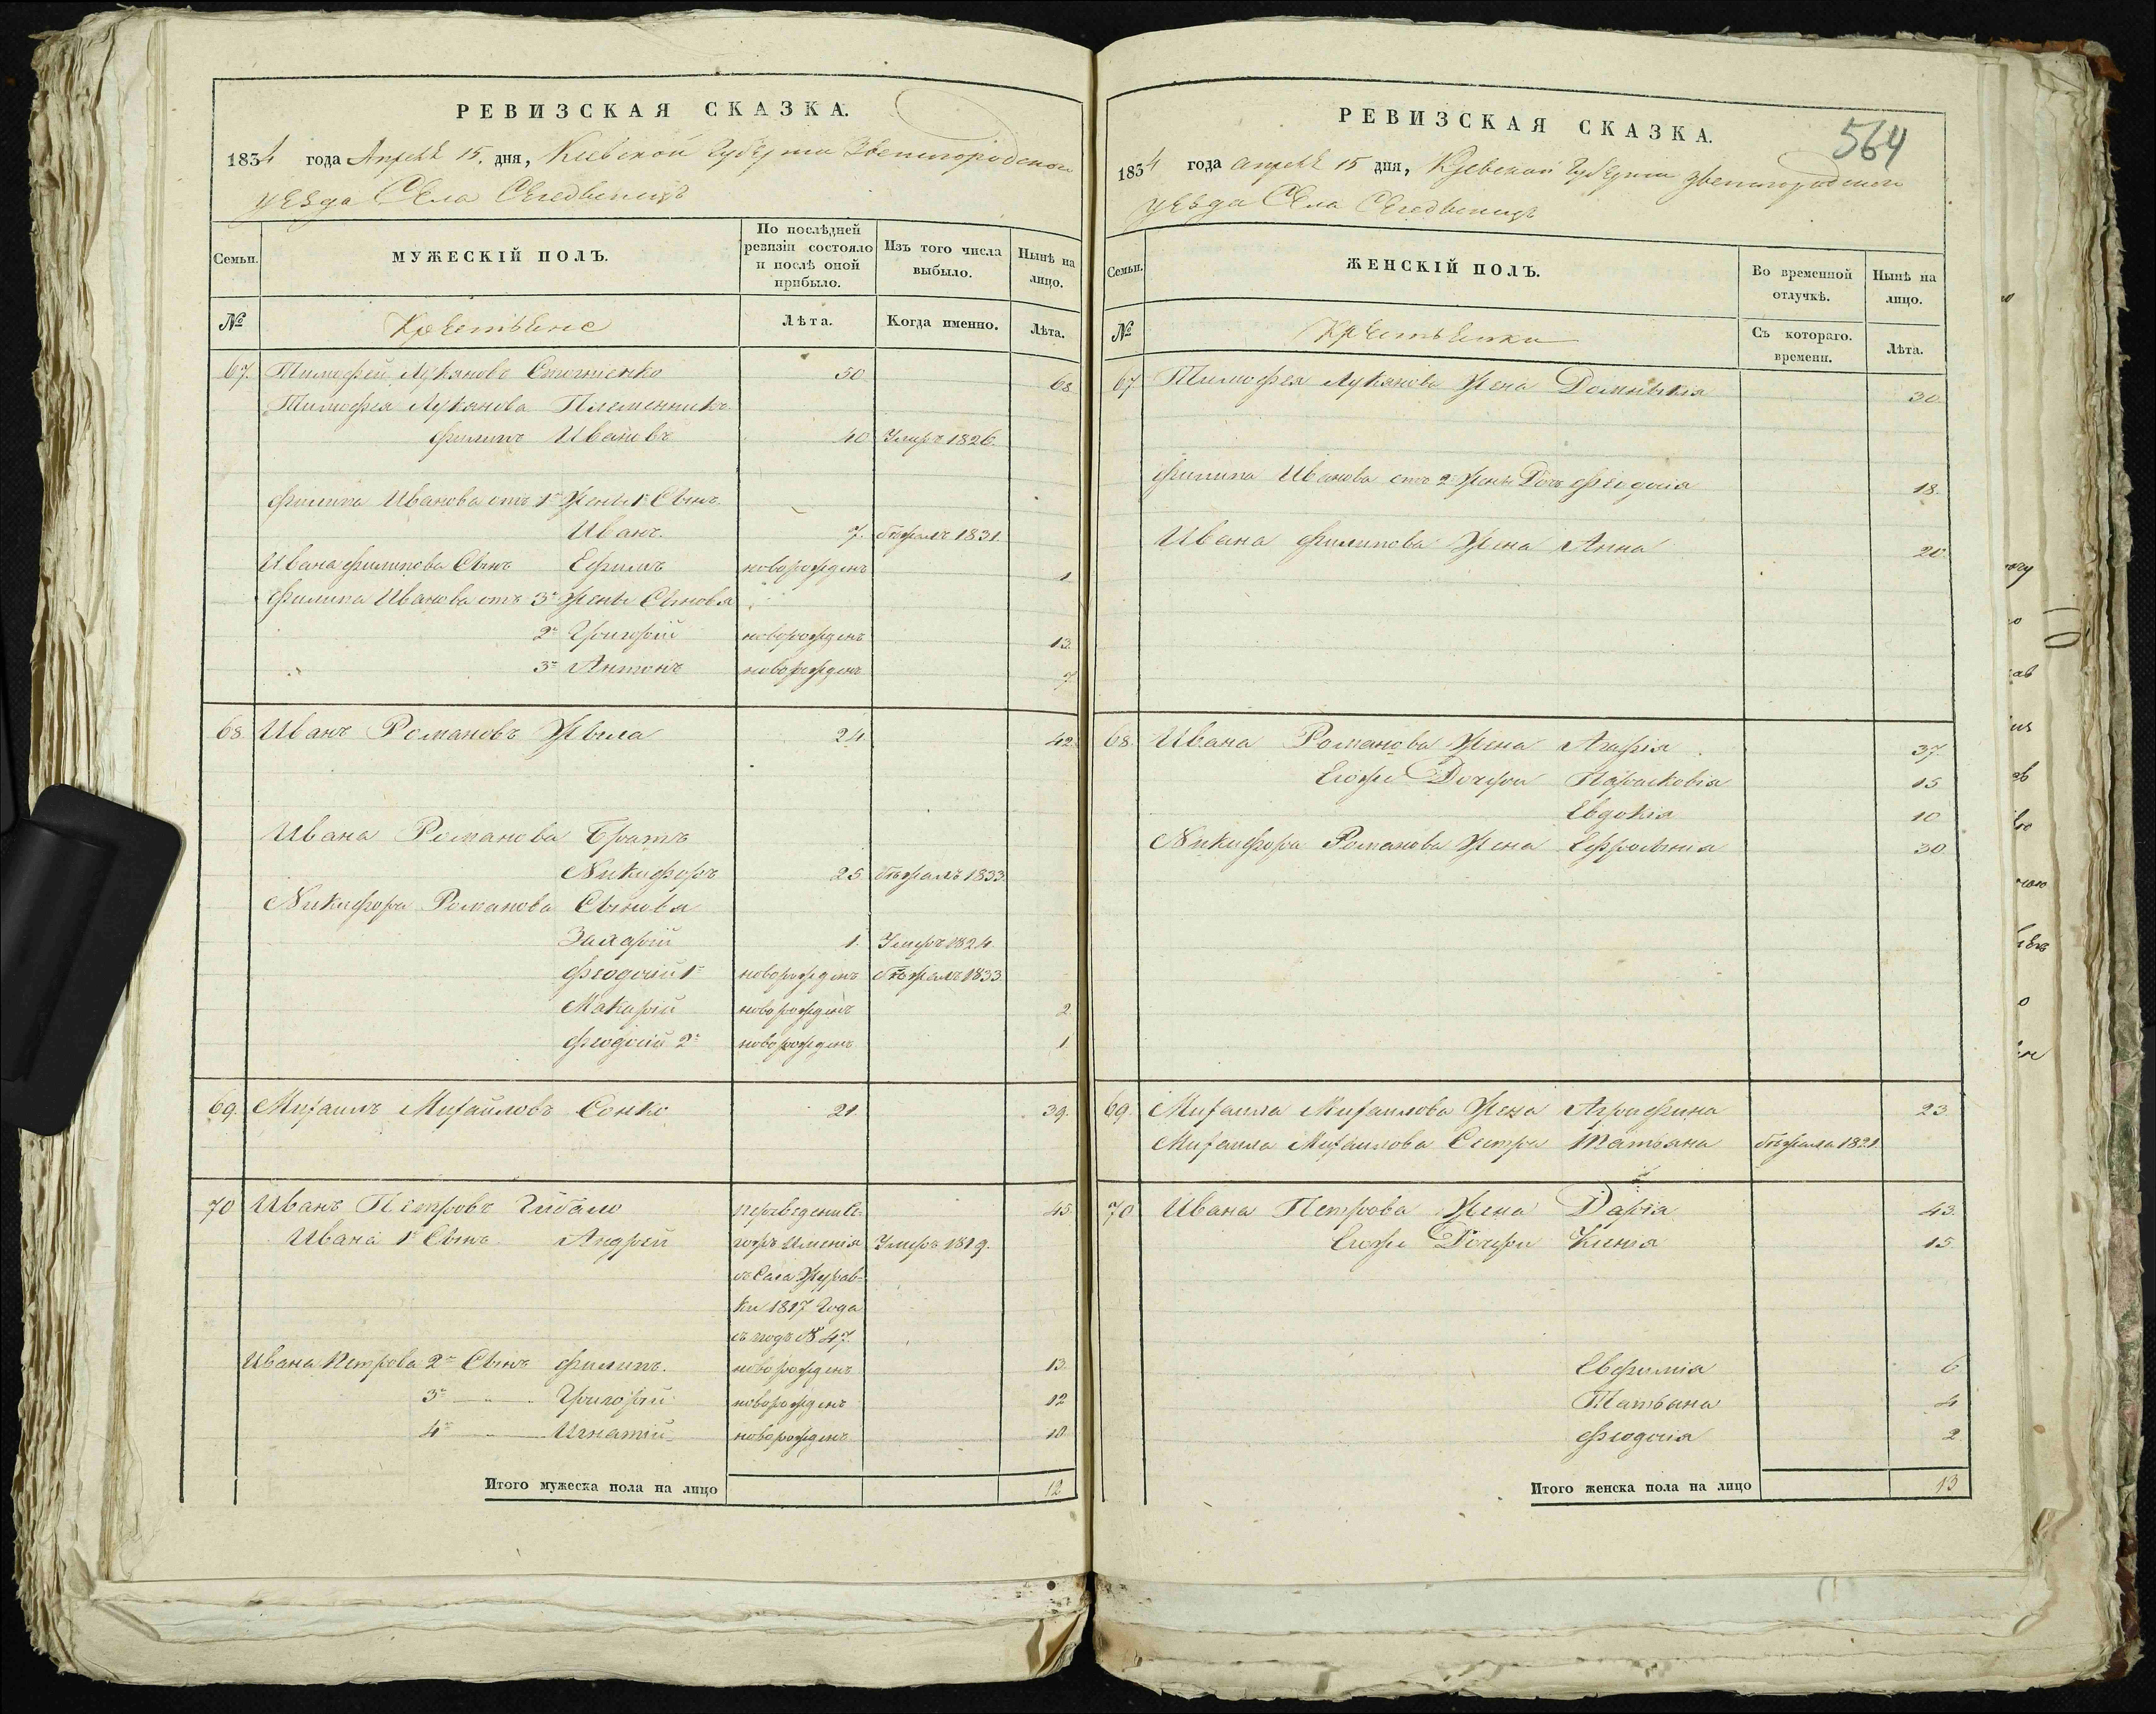 РЕВИЗСКАЯ СКАЗКА.
1834 года Апреля 15. дня, Киевской Губернии Звенигородской
уезда Села
Семьи.
МУЖЕСКІЙ ПОЛЪ.
По послѣдней ревизіи состояло и послѣ оной прибыло.
Изъ того числа выбыло.
Нынѣ на лицо.
№
Крестьяне
Лѣта.
Когда именно.
Лѣта.
67. Тимофей Лукяновъ 50 68
Тимофея Лукянова Племенникъ
Филипъ Ивановъ 40 Умиръ 1826.
Филипа Иванова отъ 1й Жены 1й Сынъ
Иванъ. 7. бѣжалъ 1831.
Ивана Филипова Сынъ Ефимъ новорожденъ 1
Филипа Иванова отъ 3й Жены Сыновья
2й Григорій новорожденъ 13.
3й Антонъ новорожденъ 7
68 Иванъ Романовъ 24 42.
Ивана Романова Братъ
Никифоръ 25 бѣжалъ 1833.
Никифора Романова Сыновья
Захарій 1. Умеръ 1824
Феодосій 1й новорожденъ бѣжалъ 1833
Макарій новорожденъ 2
Феодосій 2й новорожденъ 1
69. Михаилъ Михайловъ Сонко 21. 39.
70 Иванъ Петровъ переведен 45
Ивана 1й Сынъ Андрей Имения Умеръ 1819.
Села Журав-
ки 1817 Года
подъ № 47.
Ивана Петрова 2й Сынъ Филипъ. новорожденъ 13.
3й — " — Григорій новорожденъ 12
4й — " — Игнатій новорожденъ 10
Итого мужеска пола на лицо 12
РЕВИЗСКАЯ СКАЗКА.
564
1834 года апреля 15 дня, Киевской Губернии Звенигородской
уезда Села
Семьи.
ЖЕНСКІЙ ПОЛЪ.
Во временной отлучкѣ.
Нынѣ на лицо.
№
Крестьянки
Съ котораго. времени.
Лѣта.
67 Тимофея Лукянова Жена Домникія 30.
Филипа Иванова отъ 2й Жены Дочь Феодосія 18.
Ивана Филипова Жена Анна 20
68 Ивана Романова Жена Агафія 37.
Егожъ Дочери Парасковія 15
Евдокія 10
Никифора Романова Жена Ефросинія 30
69. Михаила Михаилова Жена Агрипина 23
Михаила Михаилова Сестра Татьяна бѣжала 1821.
70 Ивана Петрова Жена Дарія 43.
Егоже Дочери Ксенія 15
Евфимія 6
Татьяна 4
Феодосія 2.
Итого женска пола на лицо 13